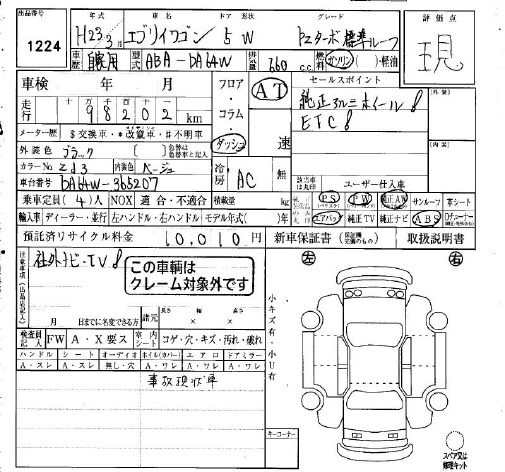 出品番号 1224
年式 車名 ドア 形状 グレード 評価点
H23 3月 エブリイワゴン 5 W PZターボ 標準ルーフ 現
車歴 自家用 型式 ABA-DA64W 排気量 660 c.c. 燃料 ガソリン ( ) 軽油
車検 年 月
走行 十 万 千 百 十
98202 km
メーター歴 $交換車・*改竄車・#不明車
外装色 ブラック 色替は色替車と記入
カラーNo ZJ3 内装色 ベージュ
車台番号 DA64W-365207
フロア・コラム・ダッシュ
AT
速
冷房 AC 無
セールスポイント
純正アルミホイール
ETC
外装
内装
該当車は丸印 ユーザー仕入車
乗車定員 ( 4 ) 人 NOX 適合・不適合 積載量 kg PS PW 純正AW サンルーフ 革シート
輸入車 ディーラー・並行 左ハンドル・右ハンドル モデル年式( )年 エアバッグ 純正TV 純正ナビ ABS
預託済リサイクル料金 10,010 円 新車保証書 取扱説明書
注意事項(出品店記入)
社外ナビ・TV
この車輌は
クレーム対象外です
月 日までに名変できる方 諸元 長さ × 幅 × 高さ
検査員記入 FW A・X要ス 室内シート コゲ・穴・キズ・汚れ・破れ
ハンドル シート オーディオ ホイル(カバー) エアロ ドアミラー
A・スレ A・スレ 無し・穴 A・ワレ A・ワレ A・ワレ
事故現状車
左 右
小キズ有・小U有
キーコーナー
スペア又は
修理キット